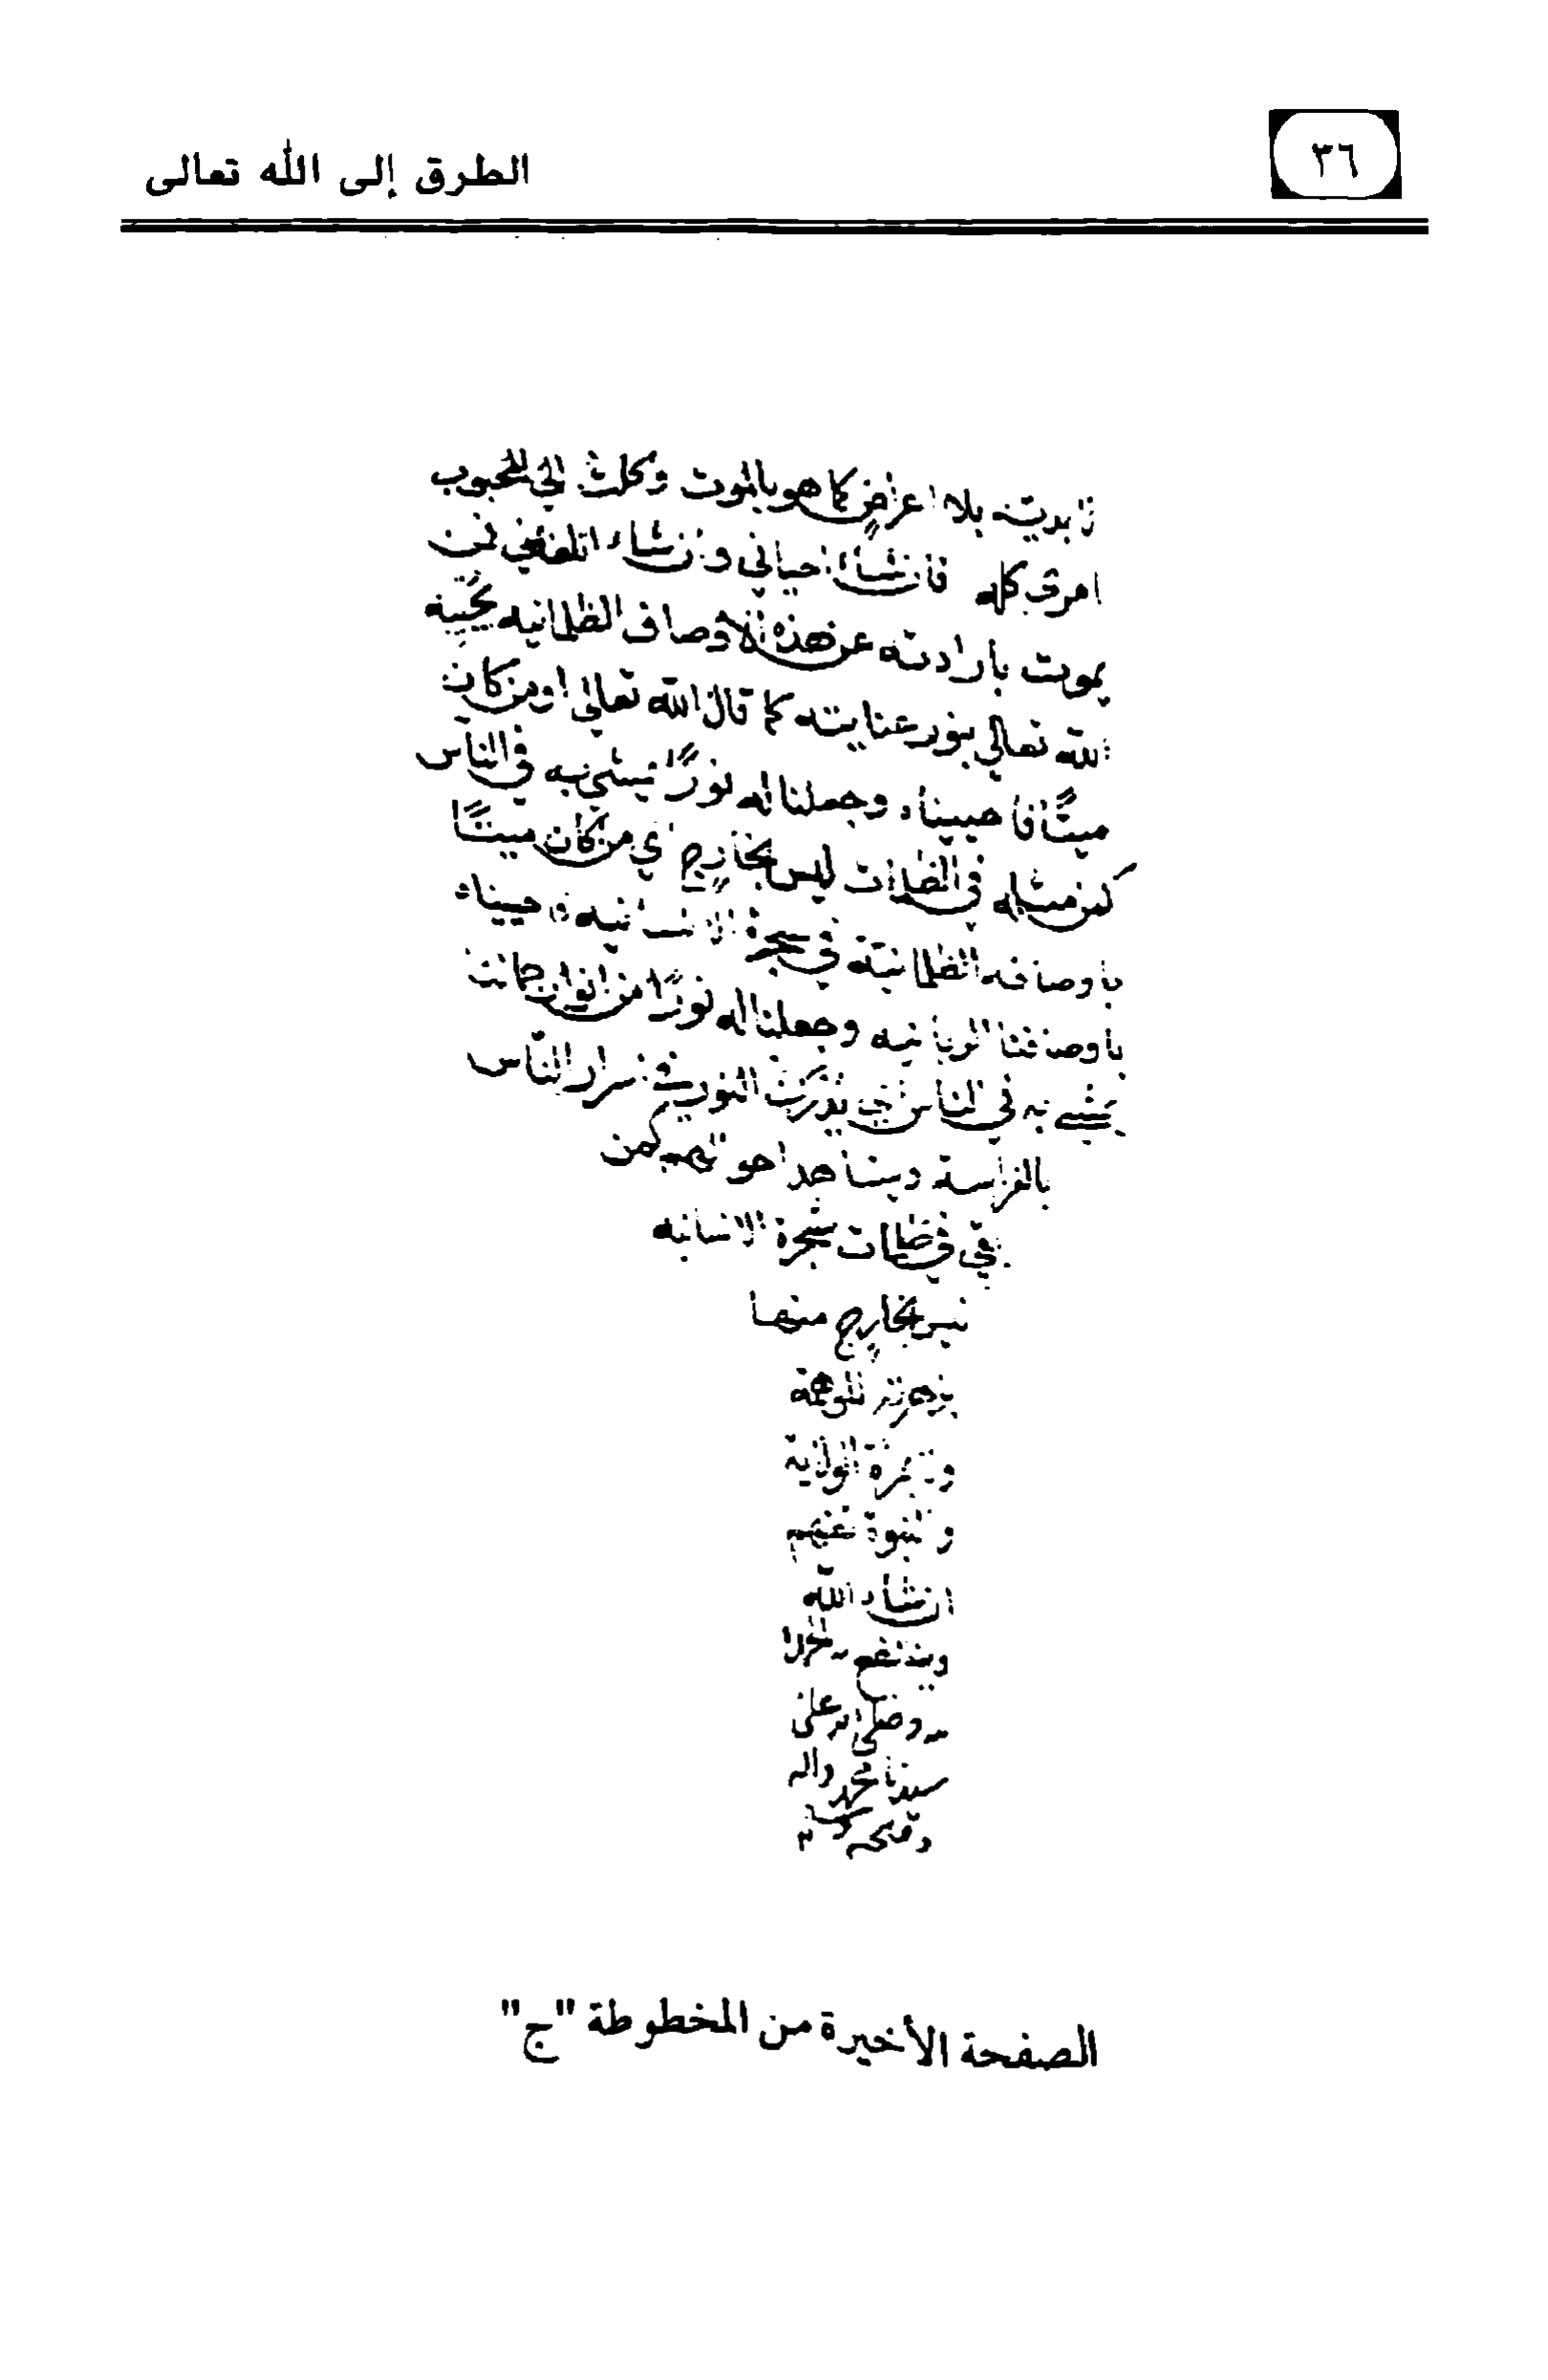 ٣٦
الطرق إلى الله تعالى
بلا اعراض كما هو بالموت وكلت الي المحبوب
امري كله فان شاء احياني وان شاء اتلفني فمن
يموت بارادته عن هذه الاوصاف الظلمانيه يحييه
الله تعالي بنور عنايته كما قال الله تعالي اومن كان
ميتًا فاحييناه وجعلنا له نورًا يمشي به في الناس
كمن مثله في الظلمات ليس بخارج اي من كان ميتًا
باوصافه الظلمانية في شجرة الانسانيه فاحييناه
باوصافنا الربانيه وجعلنا له نورًا من انوار جمالنا
يمشي به في الناس النور في اسرار الناس
بالفراسة ويشاهد احوالهم كمن
بقي في ظلمات شجرة الانسانيه
ليس بخارج منها
والنبوة
ان شاء الله
وصلي الله علي
سيدنا محمد واله
وصحبه وسلم
الصفحة الأخيرة من المخطوطة "ج"